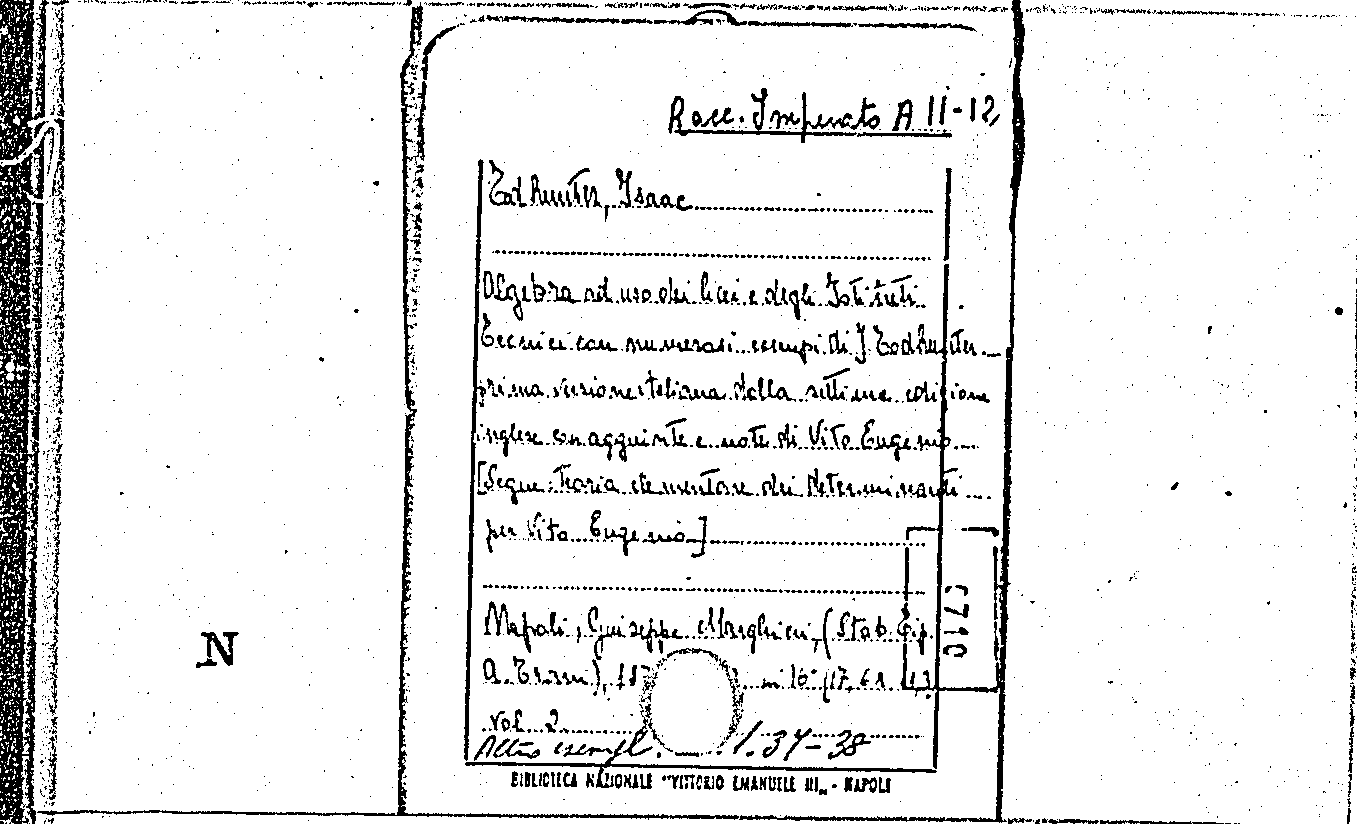 Racc. Imperato A 11-12
Todhunter, Isaac
Algebra ad uso dei licei e degli Istituti
Tecnici con numerosi esempi di J Todhunter
prima versione italiana dalla settima edizione
inglese con aggiunte e note di Vito Eugenio
[Segue: Teoria elementare dei determinanti
per Vito Eugenio]
N
Napoli, Giuseppe Marghieri, (Stab. Tip.
A. Trani), 187 in 16°
vol. 2
Altro esempl. 1.37-38
BIBLIOTECA NAZIONALE "VITTORIO EMANUELE III„ - NAPOLI